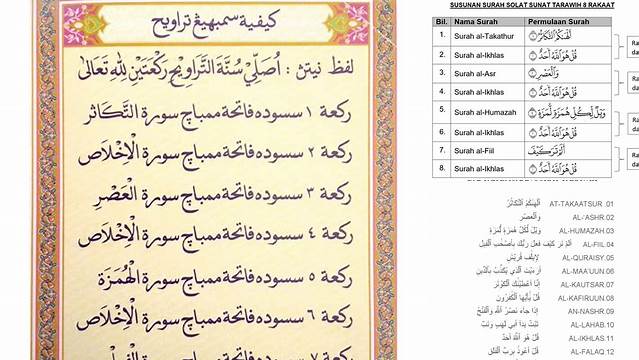 كيفية سمبهيڠ تراويح
لفظ نيتڽ : أُصَلِّي سُنَّةَ التَّرَاوِيحِ رَكْعَتَيْنِ لِلَّهِ تَعَالَى
ركعة ١ سسوده فاتحة ممباچ سورة التَّكَاثُر
ركعة ٢ سسوده فاتحة ممباچ سورة الْإِخْلَاص
ركعة ٣ سسوده فاتحة ممباچ سورة الْعَصْرِ
ركعة ٤ سسوده فاتحة ممباچ سورة الْإِخْلَاص
ركعة ٥ سسوده فاتحة ممباچ سورة الْهُمَزَة
ركعة ٦ سسوده فاتحة ممباچ سورة الْإِخْلَاص
ركعة ٧ سسوده فاتحة ممباچ سورة
SUSUNAN SURAH SOLAT SUNAT TARAWIH 8 RAKAAT
Bil. Nama Surah Permulaan Surah
1. Surah al-Takathur أَلْهَىٰكُمُ ٱلتَّكَاثُرُ ١
2. Surah al-Ikhlas قُلْ هُوَ ٱللَّهُ أَحَدٌ ١
3. Surah al-Asr وَٱلْعَصْرِ ١
4. Surah al-Ikhlas قُلْ هُوَ ٱللَّهُ أَحَدٌ ١
5. Surah al-Humazah وَيْلٌ لِّكُلِّ هُمَزَةٍ لُّمَزَةٍ ١
6. Surah al-Ikhlas قُلْ هُوَ ٱللَّهُ أَحَدٌ ١
7. Surah al-Fiil أَلَمْ تَرَ كَيْفَ
8. Surah al-Ikhlas قُلْ هُوَ ٱللَّهُ أَحَدٌ ١
Ra
da
Ra
da
Ra
da
Ra
da
أَلْهَىٰكُمُ ٱلتَّكَاثُرُ AT-TAKAATSUR .01
وَٱلْعَصْرِ AL-'ASHR .02
وَيْلٌ لِّكُلِّ هُمَزَةٍ لُّمَزَةٍ AL-HUMAZAH .03
أَلَمْ تَرَ كَيْفَ فَعَلَ رَبُّكَ بِأَصْحَٰبِ ٱلْفِيلِ AL-FIIL .04
لِإِيلَٰفِ قُرَيْشٍ AL-QURAISY .05
أَرَءَيْتَ ٱلَّذِي يُكَذِّبُ بِٱلدِّينِ AL-MAA'UUN .06
إِنَّا أَعْطَيْنَٰكَ ٱلْكَوْثَرَ AL-KAUTSAR .07
قُلْ يَٰأَيُّهَا ٱلْكَٰفِرُونَ AL-KAFIRUUN .08
إِذَا جَاءَ نَصْرُ ٱللَّهِ وَٱلْفَتْحُ AN-NASHR .09
تَبَّتْ يَدَا أَبِي لَهَبٍ وَتَبَّ AL-LAHAB .10
قُلْ هُوَ ٱللَّهُ أَحَدٌ AL-IKHLAS .11
قُلْ أَعُوذُ بِرَبِّ ٱلْفَلَقِ AL-FALAQ .12